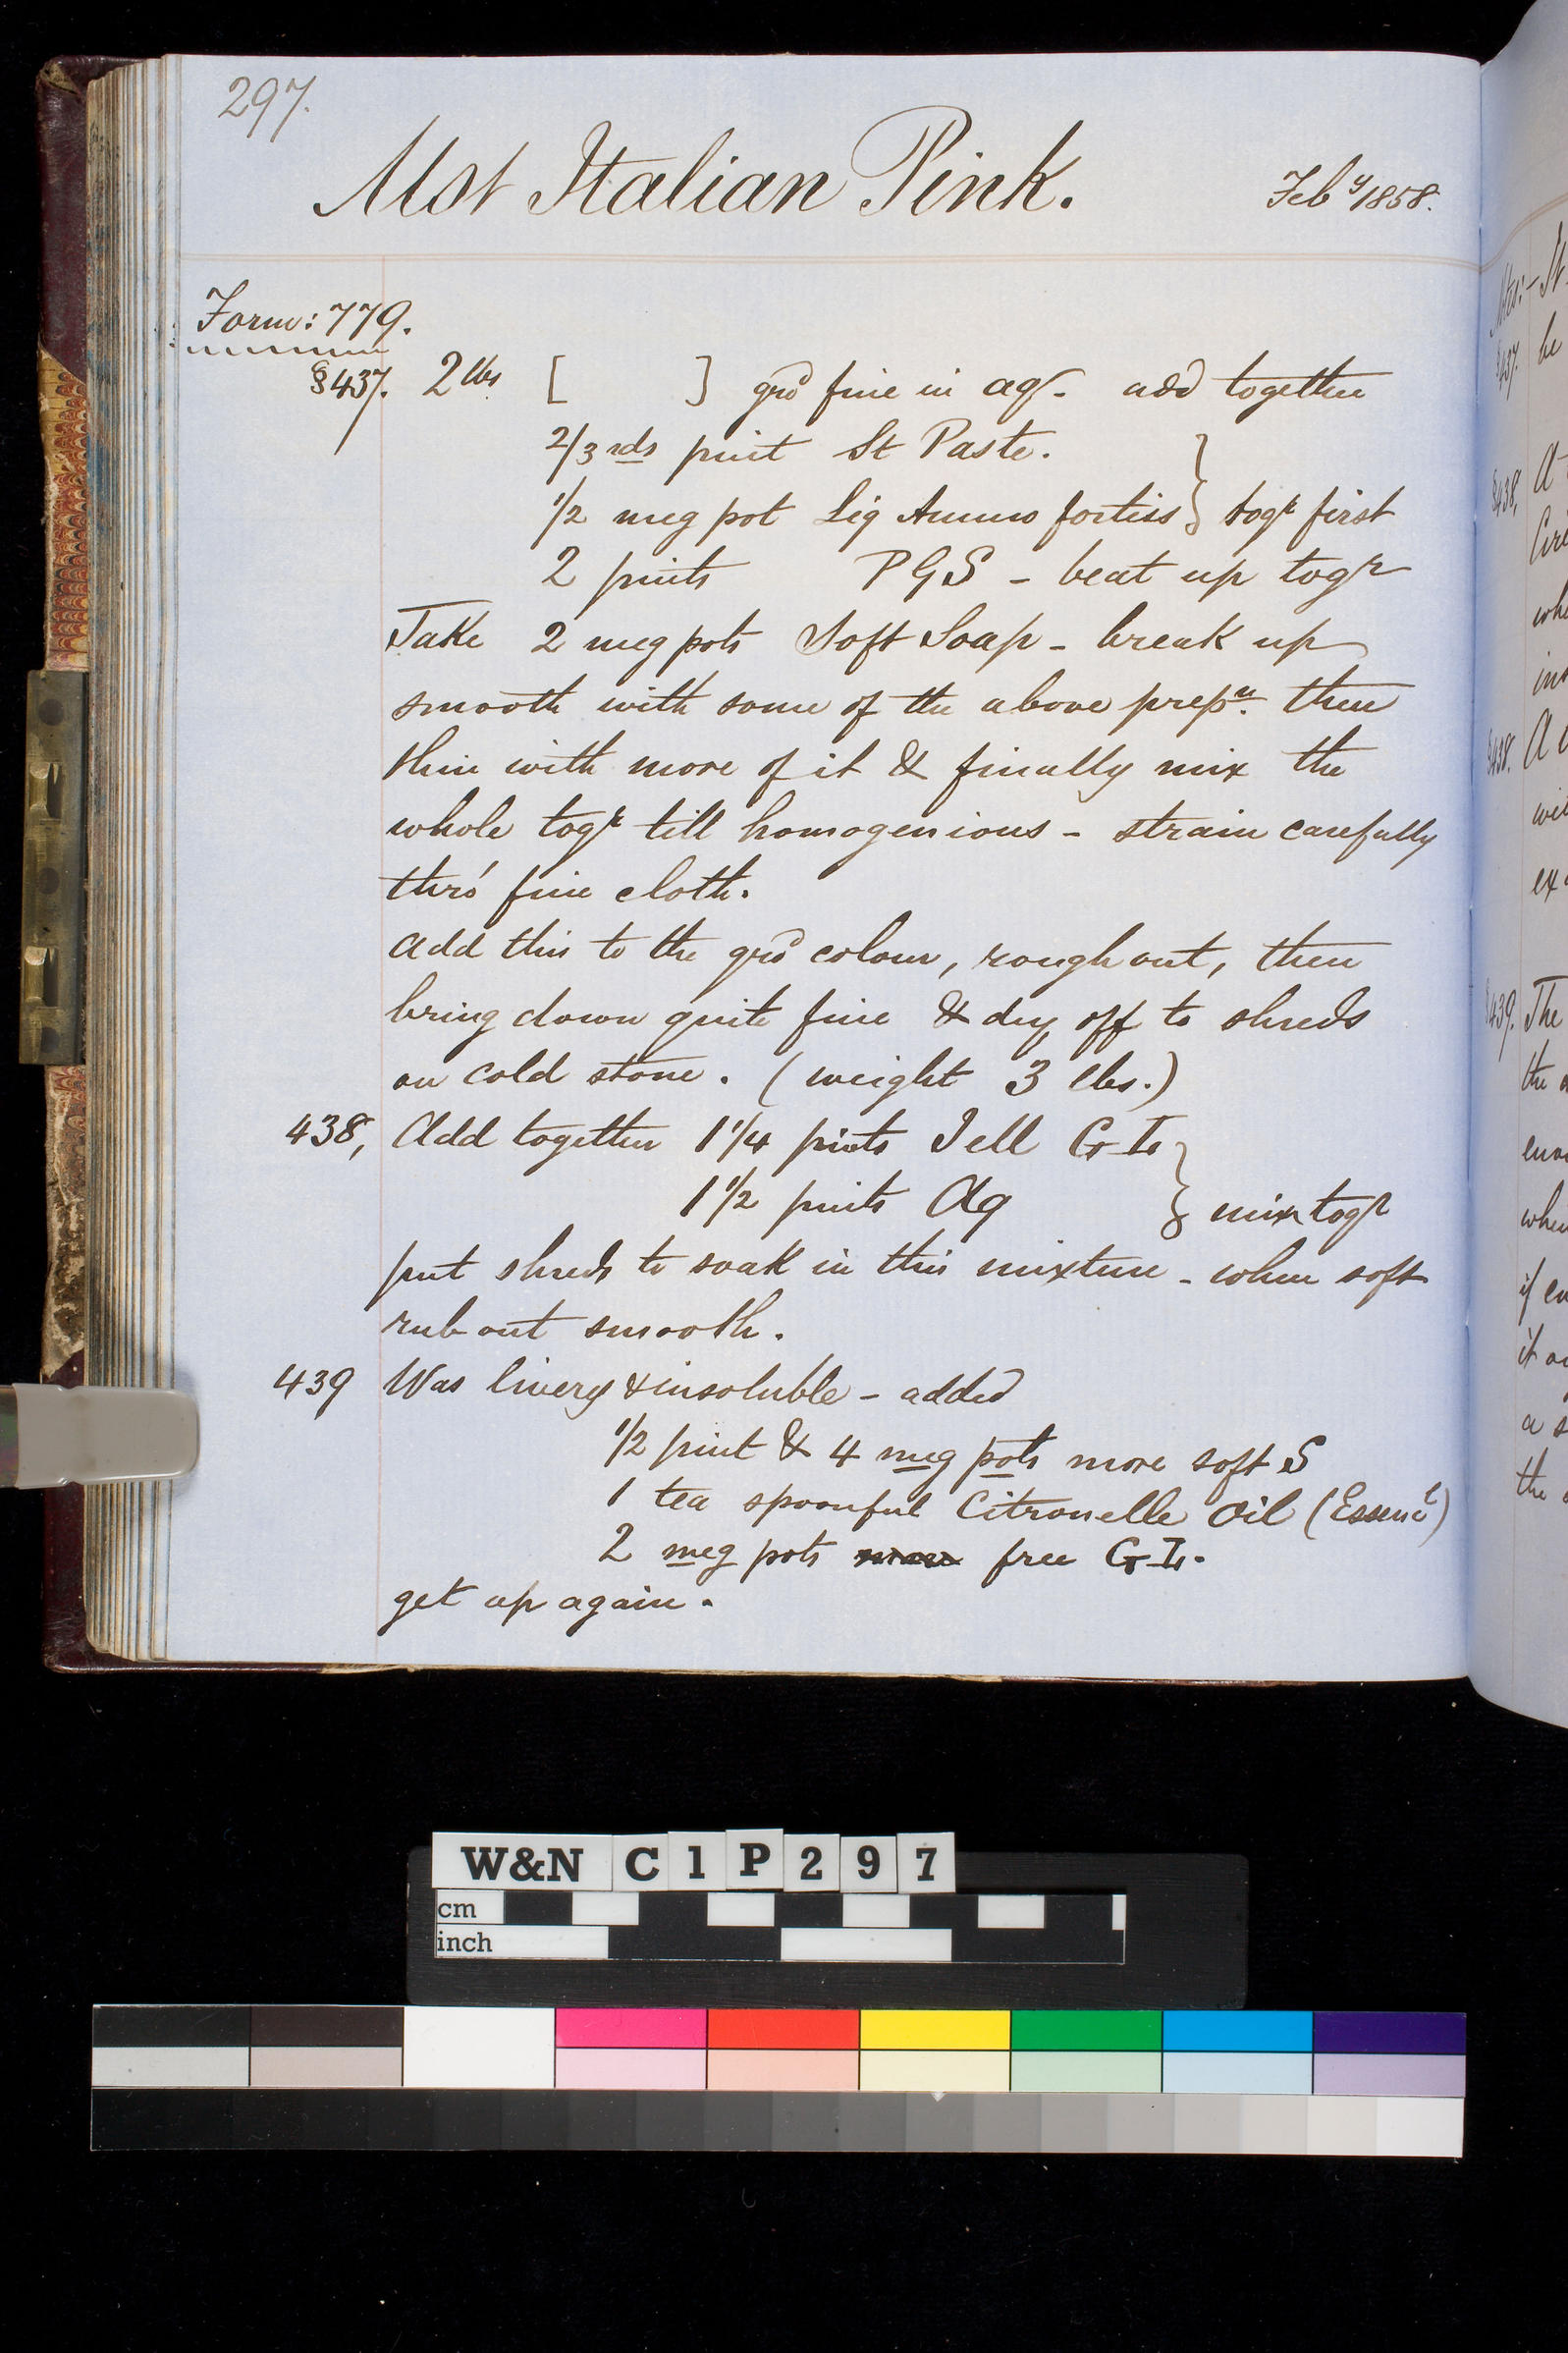 297.
Mst Italian Pink. Feby 1858.
Form: 779.
§437. 2 lbs [ ] grd fine in aq. add together
2/3 rds pint St Paste. }
1/2 meg pot Liq Ammo fortiss } togr first
2 pints PGS - beat up togr
Take 2 meg pots Soft Soap - break up
smooth with some of the above prepn. then
thin with more of it & finally mix the
whole togr till homogenious - strain carefully
thro' fine cloth.
add this to the grd colour, rough out, then
bring down quite fine & dry off to shreds
on cold stone. (weight 3 lbs.)
438, Add together 1 1/4 pints Jell G I }
1 1/2 pints Aq } mix togr
put shreds to soak in this mixture - when soft
rub out smooth.
439 Was livery & insoluble - added
1/2 pint & 4 meg pots more soft S
1 tea spoonful Citronelle Oil (Essencl)
2 meg pots free G I.
get up again.
§437. be
§438,
whe
§438.
§439. The
the
when
it
the
W&N C 1 P 2 9 7
cm
inch